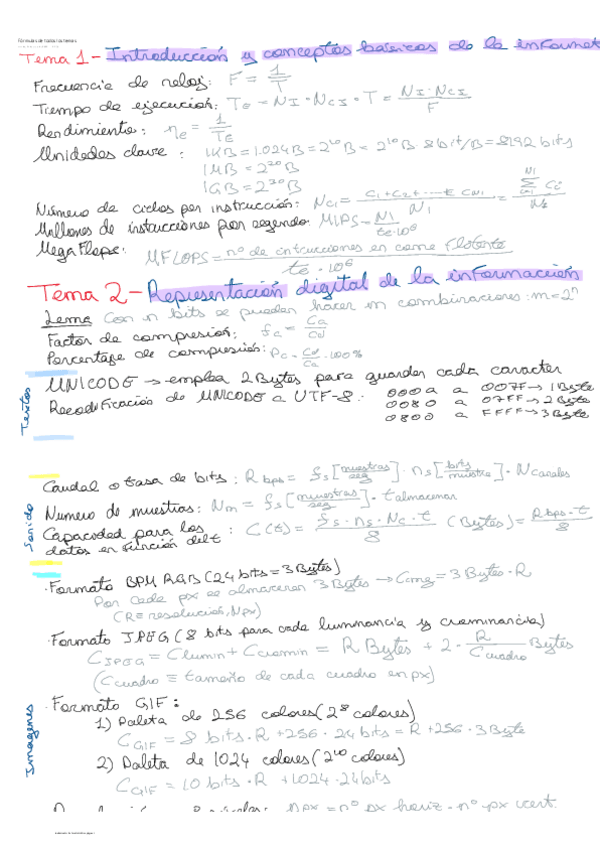 Fórmulas de todos los temas
Tema 1 - Introducción y conceptos básicos de la informát
Frecuencia de reloj: F = 1/T
Tiempo de ejecución: Te = NI · NCI · T = NI · NCI / F
Rendimiento: ηe = 1/TE
Unidades clave: 1KB = 1.024B = 2^10 B = 2^10 B · 8 bit/B = 8192 bits
1MB = 2^20 B
1GB = 2^30 B
Número de ciclos por instrucción: NCI = C1 + C2 + ... + CNI / NI = Σ Ci / NI
Millones de instrucciones por segundo: MIPS = NI / te · 10^6
MegaFlops: MFLOPS = nº de intrucciones en come flotante / te · 10^6
Tema 2 - Representación digital de la información
Lema Con n bits se pueden hacer m combinaciones: m = 2^n
Factor de compresión: fc = Ca/Cd
Porcentaje de compresión: Pc = Cd/Ca · 100%
Textos
UNICODE → emplea 2 Bytes para guardar cada caracter
Recodificación de UNICODE a UTF-8: 0000 a 007F → 1 Byte
0080 a 07FF → 2 Byte
0800 a FFFF → 3 Byte
Sonido
Caudal o tasa de bits: R bps = fs [muestras/seg] · ns [bits/muestra] · Ncanales
Numero de muestras: Nm = fs [muestras/seg] · t almacenar
Capacidad para los datos en función del t: C(t) = fs · ns · Nc · t / 8 (Bytes) = Rbps · t / 8
Imagenes
· Formato BPM RGB (24 bits = 3 Bytes)
Por cada px se almacenan 3 Bytes → Cimg = 3 Bytes · R
(R ≡ resolución, Npx)
· Formato JPEG (8 bits para cada luminancia y crominancia)
CJPEG = Clumin + Ccromin = R Bytes + 2 · R/Ccuadro Bytes
(Ccuadro ≡ tamaño de cada cuadro en px)
· Formato GIF:
1) Paleta de 256 colores (2^8 colores)
CGIF = 8 bits · R + 256 · 24 bits = R + 256 · 3 Byte
2) Paleta de 1024 colores (2^10 colores)
CGIF = 10 bits · R + 1024 · 24 bits
Npx = nº px horiz · nº px vert.